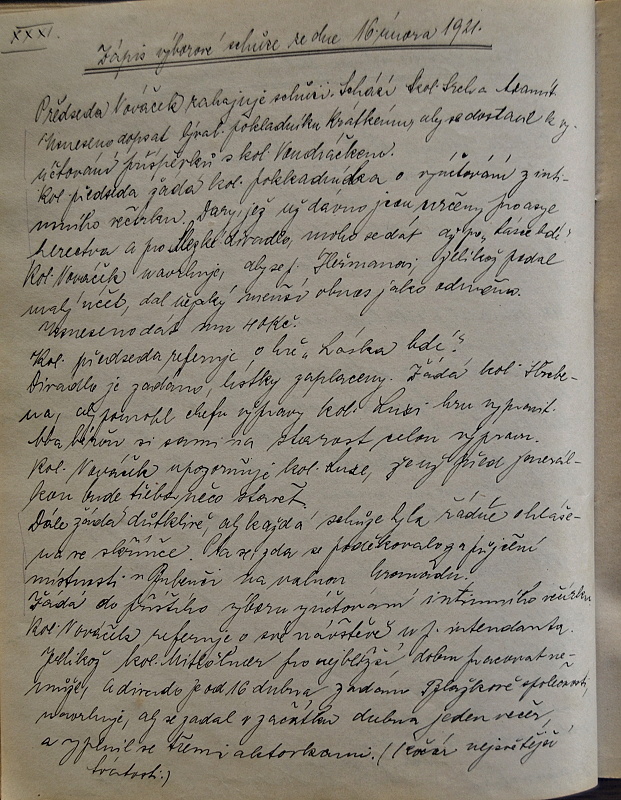 XXXI.
Zápis výborové schůze ze dne 16. února 1921.
Předseda Nováček zahajuje schůzi. Schází kol. Srch a
Usneseno dopsat býval. pokladníku Krátkému, aby se dostavil k vy-
účtování příspěvků s kol. Vondráčkem.
Kol. předseda žádá kol. pokladníka o vyúčtování z inti-
mního večírku. Dary, jež už dávno jsou určeny pro asyl
herectva a pro České divadlo, mohou se dát až po „Lásce bdí“
Kol. Nováček navrhuje, aby se p. Heřmanovi, jelikož podal
malý účet, dal nějaký menší obnos jako odměna.
Usneseno dát mu 40 Kč.
Kol. předseda referuje o hře „Láska bdí“.
Divadlo je zadáno, lístky zaplaceny. Žádá kol.
na, aby pomohl chefu výpravy kol. Luxi hru vypravit.
Oba berou si sami na starost celou výpravu.
Kol. Nováček upozorňuje kol. Luxe, že už před generál-
kou bude třeba něco
Dále žádá důtklivě, aby každá schůze byla řádně ohláše-
na ve skřínce. Ptá se, zda se poděkovalo za půjčení
místnosti v Bubenči na valnou hromadu.
Žádá do příštího výboru vyúčtování intimního večírku
Kol. Nováček referuje o své návštěvě u p. intendanta.
Jelikož kol. pro nejbližší dobu pracovat ne-
může, a divadlo je od 16 dubna zadáno společnosti,
navrhuje, aby se zadal v začátku dubna jeden večer,
a vyplnil se třemi aktovkami. (Kočár nejsvětější
svátosti.)